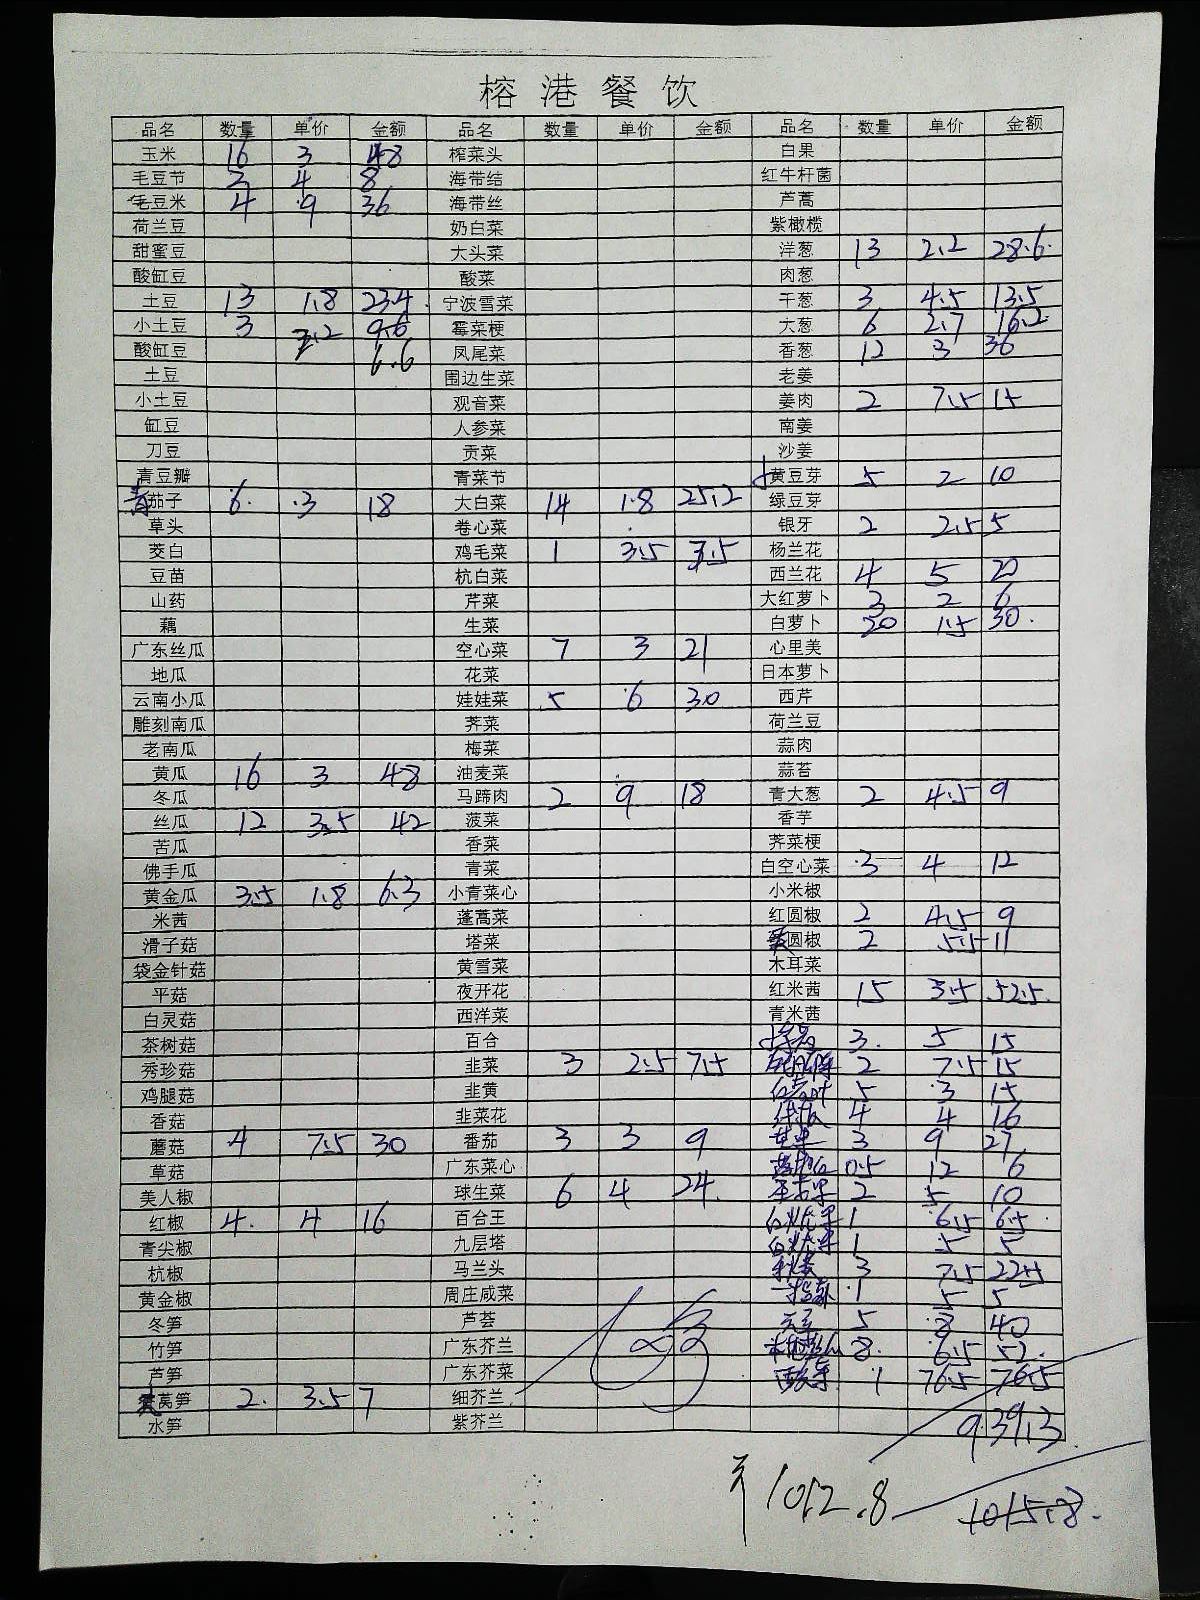 榕港餐饮
品名 数量 单价 金额 品名 数量 单价 金额 品名 数量 单价 金额
玉米 16 3 48 榨菜头 白果
毛豆节 2 4 8 海带结 红牛杆菌
毛豆米 4 9 36 海带丝 芦蒿
荷兰豆 奶白菜 紫橄榄
甜蜜豆 大头菜 洋葱 13 2.2 28.6
酸缸豆 酸菜 肉葱
土豆 13 1.8 23.4 宁波雪菜 干葱 3 4.5 13.5
小土豆 3 9.6 霉菜梗 大葱 6 2.7 16.2
酸缸豆 6.6 凤尾菜 香葱 12 3 36
土豆 围边生菜 老姜
小土豆 观音菜 姜肉 2 7.5 15
缸豆 人参菜 南姜
刀豆 贡菜 沙姜
青豆瓣 青菜节 黄豆芽 5 2 10
青茄子 6 3 18 大白菜 14 1.8 25.2 绿豆芽
草头 卷心菜 银牙 2 2.5 5
茭白 鸡毛菜 1 3.5 3.5 杨兰花
豆苗 杭白菜 西兰花 4 5 20
山药 芹菜 大红萝卜 3 2 6
藕 生菜 白萝卜 20 1.5 30
广东丝瓜 空心菜 7 3 21 心里美
地瓜 花菜 日本萝卜
云南小瓜 娃娃菜 5 6 30 西芹
雕刻南瓜 荠菜 荷兰豆
老南瓜 梅菜 蒜肉
黄瓜 16 3 48 油麦菜 蒜苔
冬瓜 马蹄肉 2 9 18 青大葱 2 4.5 9
丝瓜 12 3.5 42 菠菜 香芋
苦瓜 香菜 荠菜梗
佛手瓜 青菜 白空心菜 3 4 12
黄金瓜 3.5 1.8 6.3 小青菜心 小米椒
米茜 蓬蒿菜 红圆椒 2 4.5 9
滑子菇 塔菜 圆椒 2 5.5 11
袋金针菇 黄雪菜 木耳菜
平菇 夜开花 红米茜 15 3.5 52.5
白灵菇 西洋菜 青米茜
茶树菇 百合 3 5 15
秀珍菇 韭菜 3 2.5 7.5 2 7.5 15
鸡腿菇 韭黄 5 3 15
香菇 韭菜花 4 4 16
蘑菇 4 7.5 30 番茄 3 3 9 3 9 27
草菇 广东菜心 0.5 12 6
美人椒 球生菜 6 4 24 2 5 10
红椒 4 4 16 百合王 1 6.5 6.5
青尖椒 九层塔 1 5 5
杭椒 马兰头 3 7.5 22.5
黄金椒 周庄咸菜 1 5 5
冬笋 芦荟 5 8 40
竹笋 广东芥兰 8 6.5 52
芦笋 广东芥菜 1 76.5 76.5
莴笋 2 3.5 7 细芥兰
水笋 紫芥兰 939.3
1012.8
1015.8